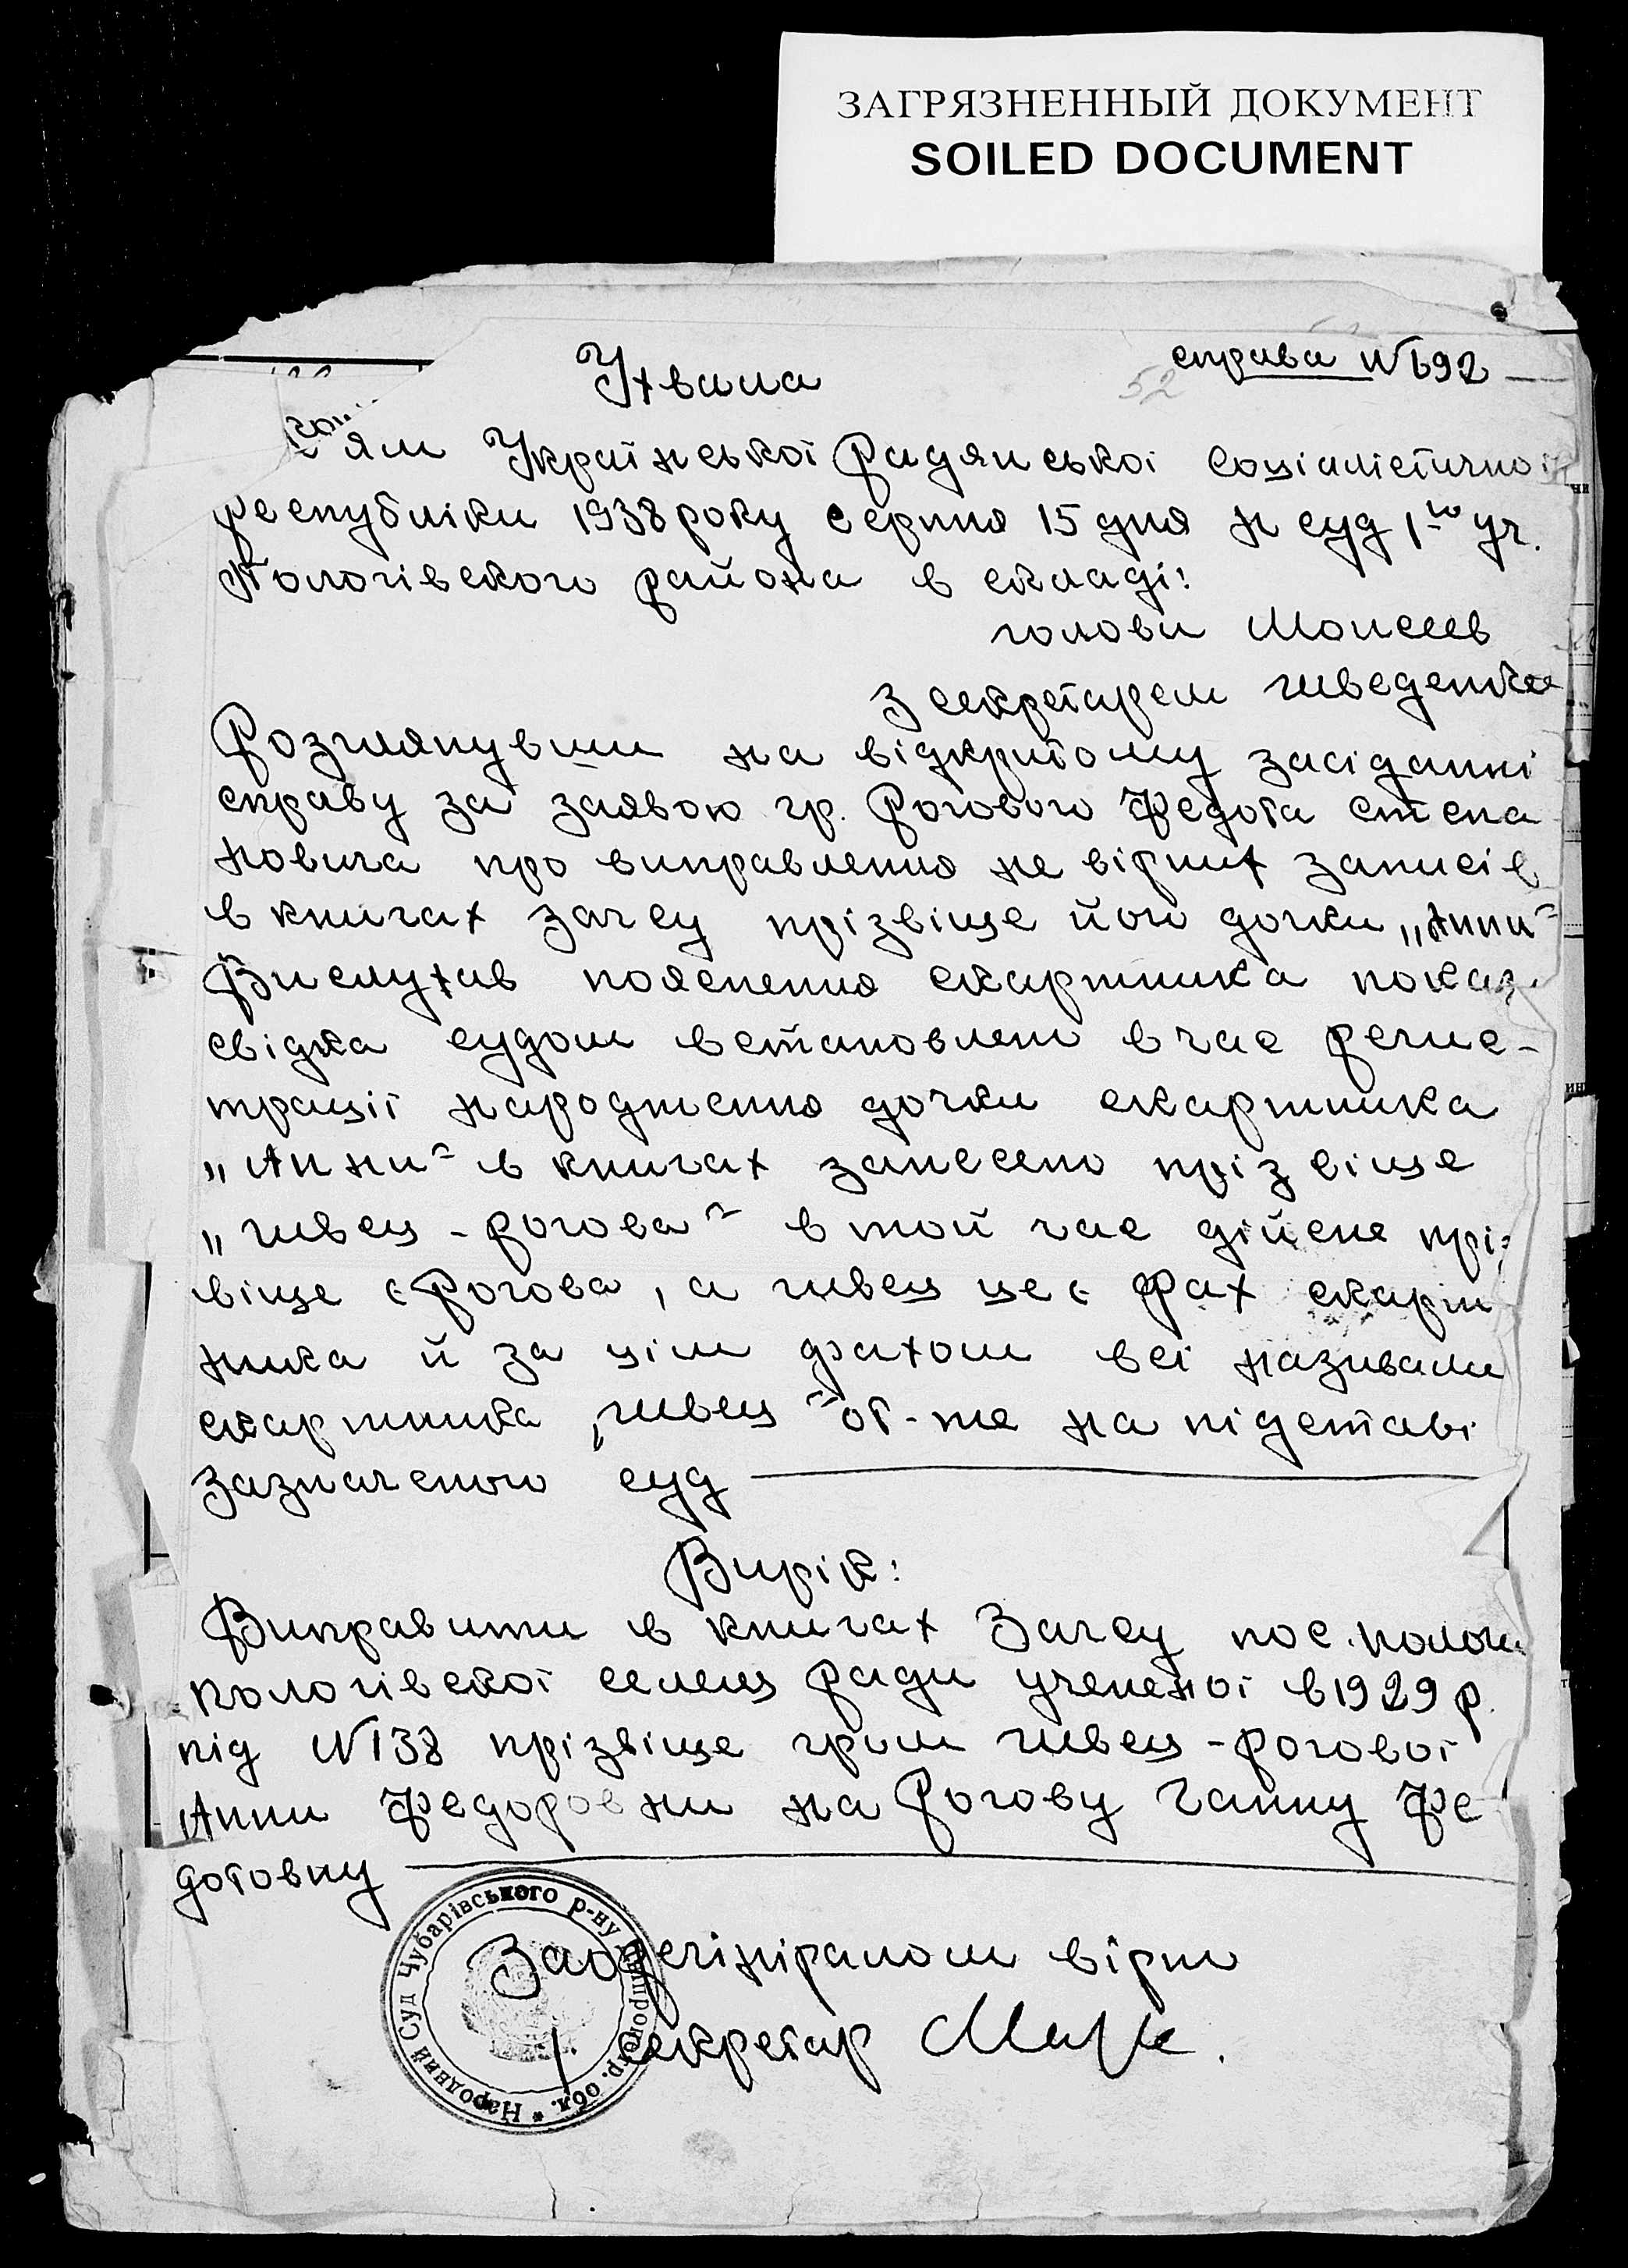 ЗАГРЯЗНЕННЫЙ ДОКУМЕНТ
SOILED DOCUMENT
справа № 692
52
Ухвала
ям Української Радянської Соціалістичної
республіки 1938 року серпня 15 дня н суд 1го уч.
Пологівського района в складі:
голови Моисеев
З секретарем Шведенко
Розглянувши на відкритому засіданні
справу за заявою гр. Рогового Федота Степа
новича про виправлення не вірних записів
в книгах Загсу прізвіще його дочки „Анни"
Вислухав пояснення скаржника показ
свідка судом встановлено в час регис-
трації народження дочки скаржника
„Анни" в книгах занесено прізвіще
„Швец-Рогова" в той час дійсне прі
віще є Рогова, а швец це є фах скарж
ника й за цім фахом всі називали
скаржника „Швец" от-же на підставі
зазначеного суд
Вирік:
Виправити в книгах Загсу пос. пологи
Пологівскої селещ ради учененої в 1929 р.
під № 138 прізвіще гром Швец-Рогової
Анни Федоровни на Рогову Ганну Фе
дотовну
За орегініралом вірно
Секретар
Народний Суд Чубарівського р-ну Дніпропетр. обл. *